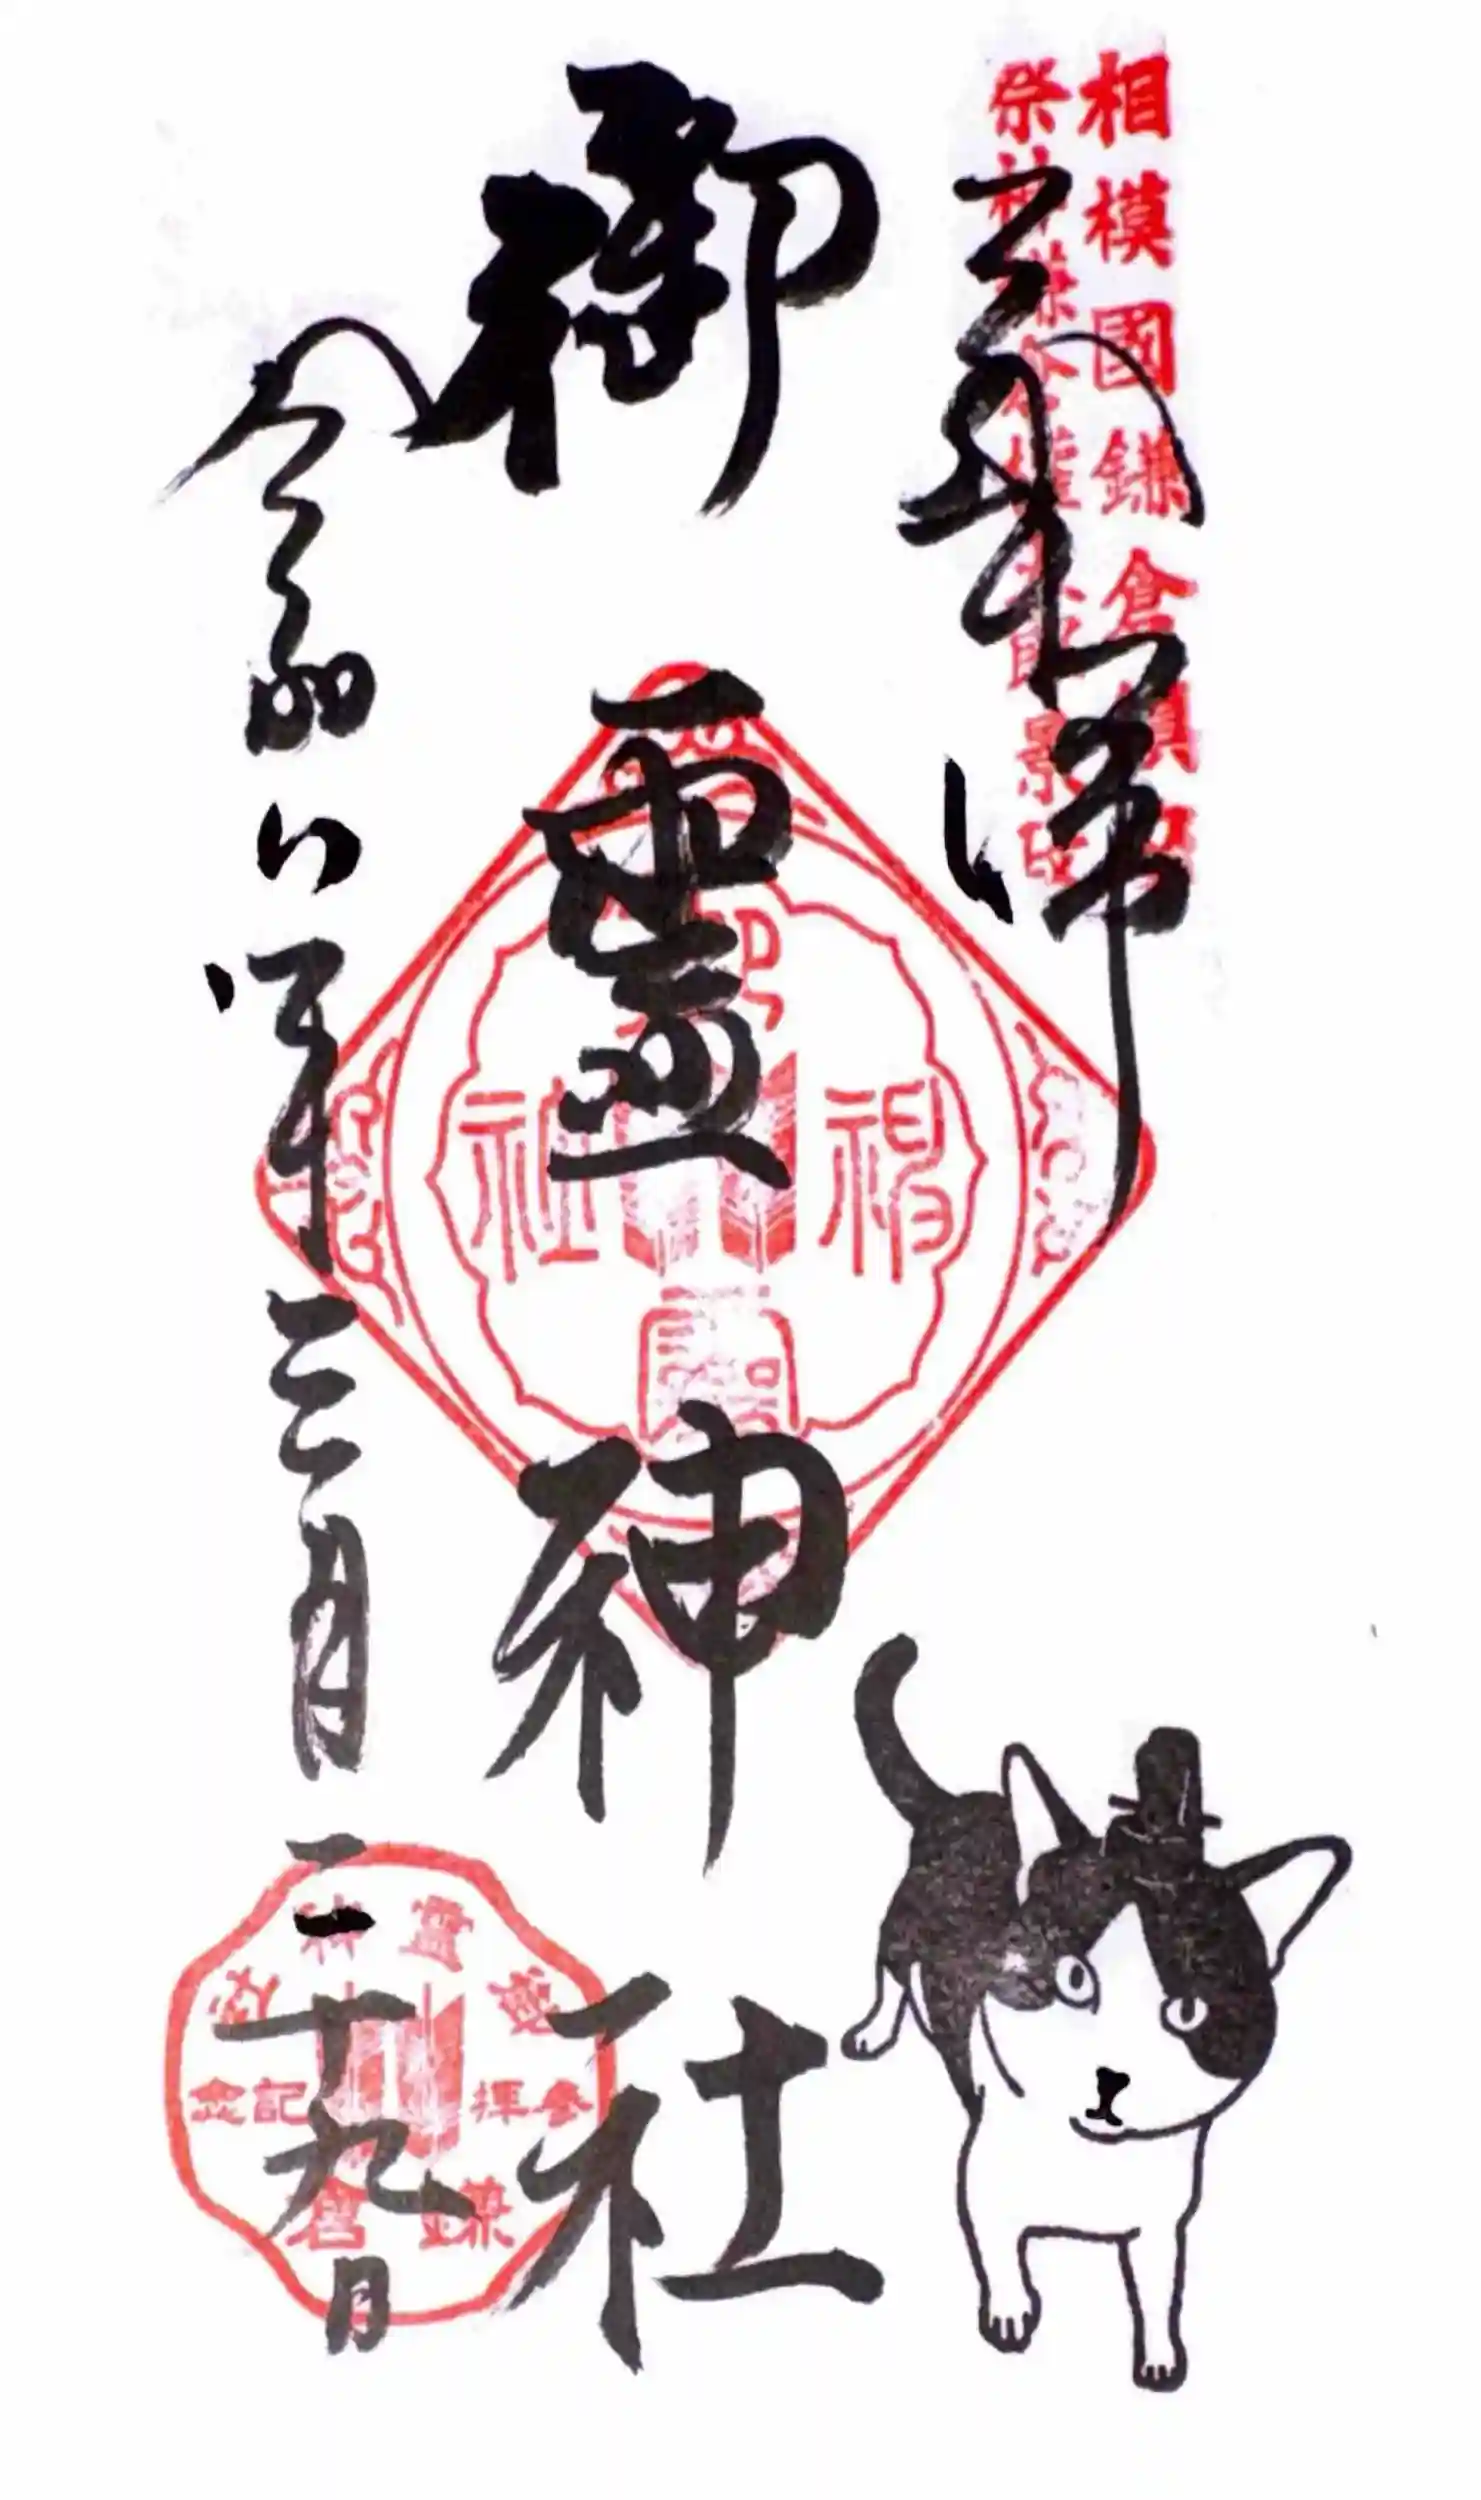 相模國鎌倉鎮座
祭神鎌倉權五郎景政
奉拝
御靈神社
令和八年三月二十九日
神社
御靈神社
參拝記念
鎌倉